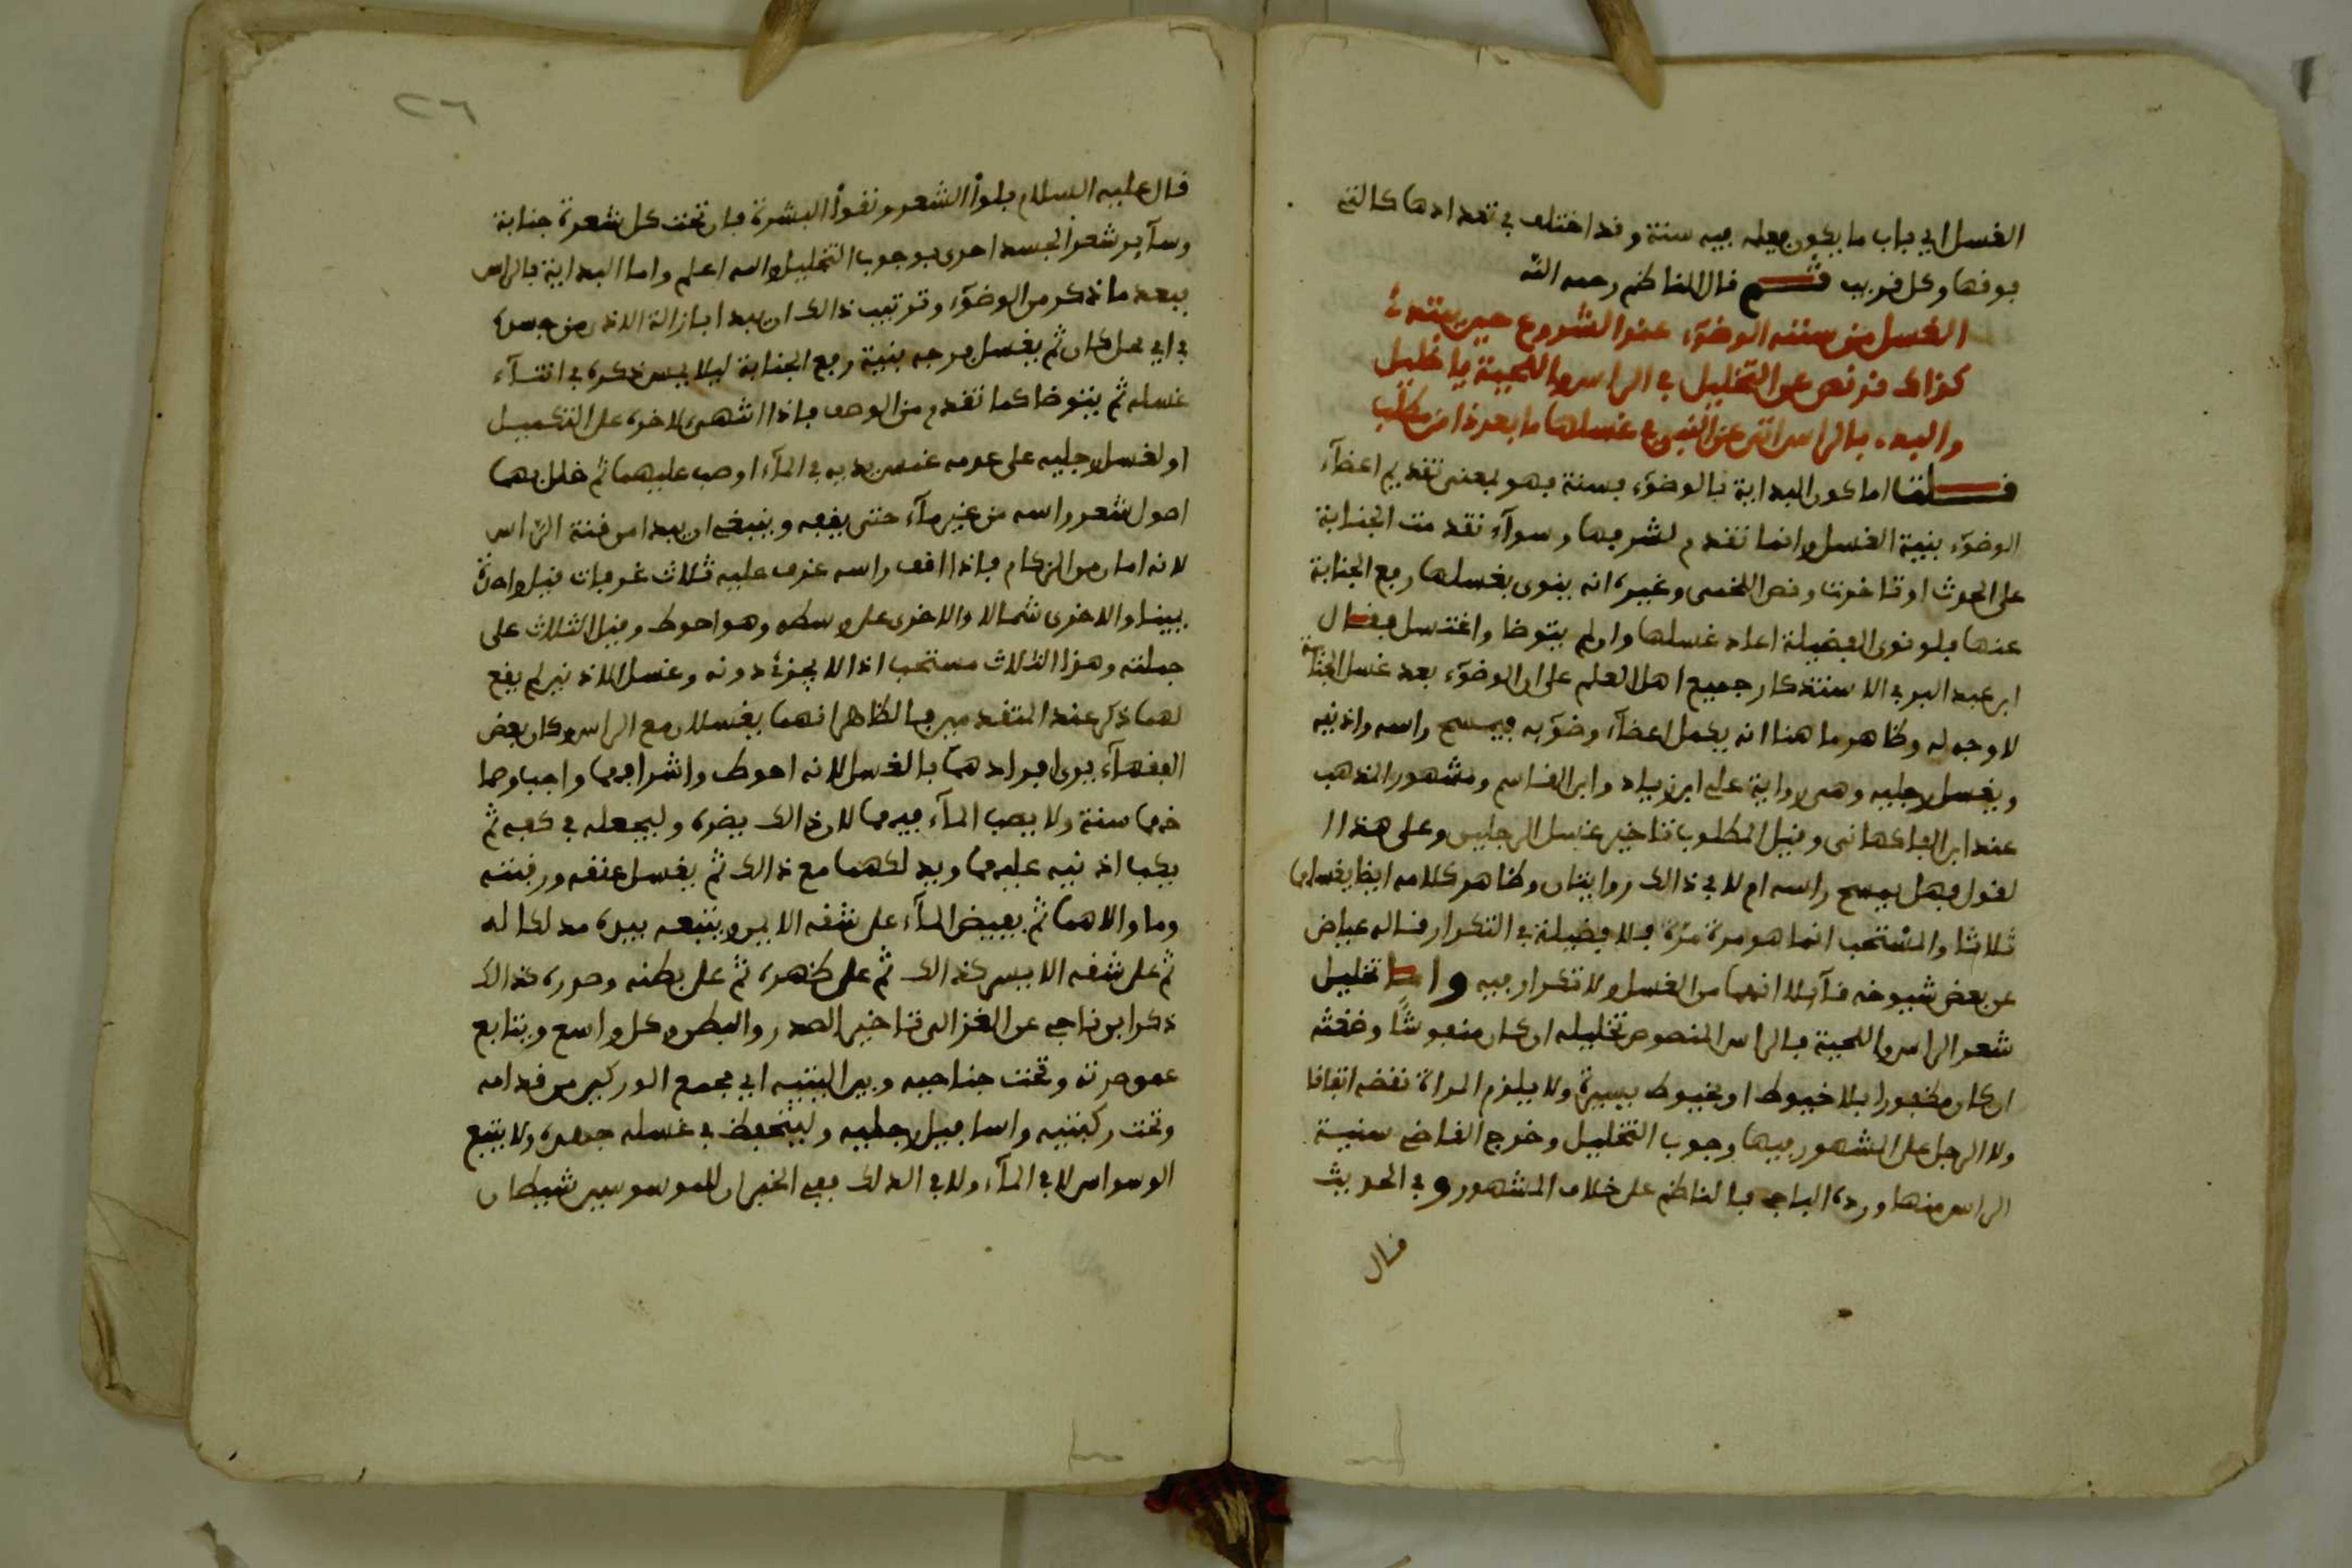 الغسل اي باب ما يكون فعله فيه سنة وقد اختلف في تعدادها كالتي
فوقها وكل قريب ثم قال الناظم رحمه الله
الغسل من سننه الوضوء عند الشروع حين يبتدئ
كذاك قد نص عن التخليل في الراس واللحية يا خليل
والبدء بالراس اتى عن النبي غسلها ما بعد ذا من مطلب
قلت اما كون البداية بالوضوء فسنة فهو بمعنى تقديم اعضآء
الوضوء بنية الغسل وانما تقدم لشرفها وسوآء تقدمت الجنابة
على الحدث او تاخرت ونص اللخمى وغيره انه ينوى بغسلها رفع الجنابة
عنها فلو نوى الفضيلة اعاد غسلها وان لم يتوضا واغتسل فقال
ابن عبد البر في الاستذكار جميع اهل العلم على ان الوضوء بعد غسل الجنابة
لا وجه له وظاهر ما هنا انه يكمل اعضآء وضوئه فيمسح راسه واذنيه
ويغسل رجليه وهى رواية على ابن زياد وابن القاسم ومشهور المذهب
عند ابن الفاكهانى وقيل المطلوب تاخير غسل الرجلين وعلى هذا ا
لقول فهل يمسح راسه ام لا في ذالك روايتان وظاهر كلامه ايضا يغسلها
ثلاثا والمستحب انما هو مرة مرة فلا فضيلة في التكرار قاله عياض
عن بعض شيوخه قآئلا انها من الغسل ولا تكرار فيه واما تخليل
شعر الراس واللحية فالراس المنصوص تخليله ان كان منفوشا وضغثه
ان كان مظفورا بلا خيوط او بخيوط يسيرة ولا يلزم المراة نقضه اتفاقا
ولا الرجل على المشهور فيها وجوب التخليل وخرج القاضي سنية
الراس منها ورده الباجي فالناظم على خلاف المشهور وفي الحديث
قال
٢٦
قال عليه السلام بلوا الشعر ونقوا البشرة فان تحت كل شعرة جنابة
وسآير شعر الجسد احرى بوجوب التخليل والله اعلم واما البداية بالراس
فبعد ما ذكر من الوضوء وترتيب ذالك ان يبدا بازالة الاذى من جسده
في اي محل كان ثم يغسل فرجه بنية رفع الجنابة ليلا يمس ذكره في اثنآء
غسله ثم يتوضا كما تقدم من الوصف فاذا انتهى لاخره على التكميل
او لغسل رجليه على عدمه غمس يديه في المآء او صب عليهما ثم خلل بهما
اصول شعر راسه من غير مآء حتى يقفه وينبغي ان يبدا من قنة الراس
لانه امان من الزكام فاذا اقف راسه غرف عليه ثلاث غرفات قيل واحدة
يمينا والاخرى شمالا والاخرى على وسطه وهو احوط وقيل الثلاث على
جملته وهذا الثلاث مستحب اذ لا يجزئ دونه وغسل الاذنين لم يقع
لهما ذكر عند المتقدمين فالظاهر انهما يغسلان مع الراس وكان بعض
الفقهآء يرى افرادهما بالغسل لانه احوط واشرافهما واجب وصما
خهما سنة ولا يصب المآء فيهما لان ذالك يضره وليجعله في كفه ثم
يكب اذنيه عليهما ويدلكهما مع ذالك ثم يغسل عنقه ورقبته
وما والاهما ثم يفيض المآء على شقه الايمن ويتبعه بيده مدلكا له
ثم على شقه الايسر كذالك ثم على ظهره ثم على بطنه وصدره كذالك
ذكر ابن ناجي عن الغزالى تاخير الصدر والبطن وكل واسع ويتابع
عمق صرته وتحت جناحيه وبين اليتيه اي مجمع الوركين من قدامه
وتحت ركبتيه واسافل رجليه وليتحفظ في غسله جهده ولا يتبع
الوسواس لا في المآء ولا في الدلك ففي الخبر ان للموسوسين شيطان